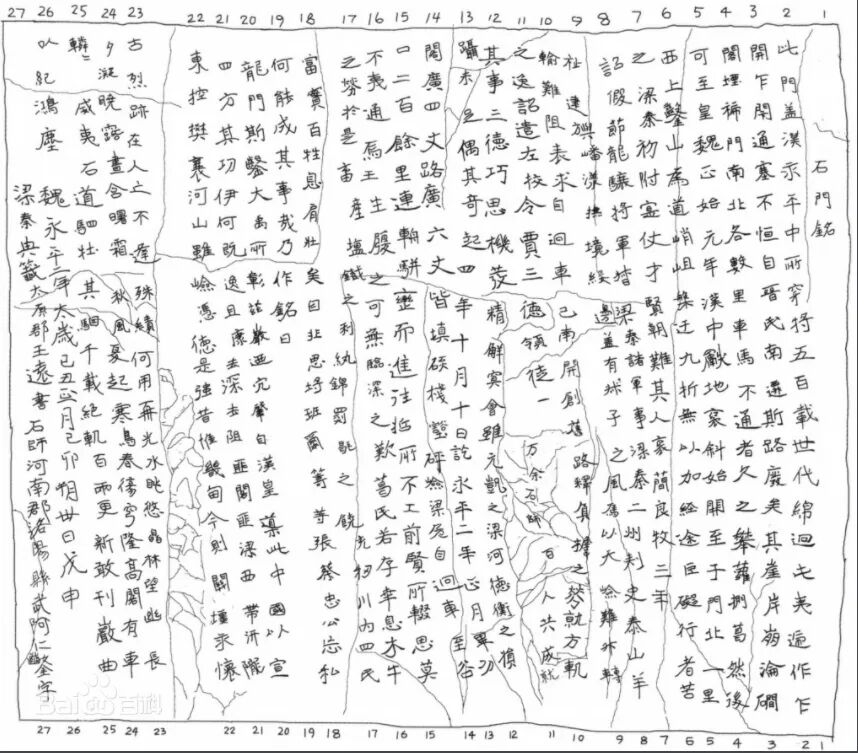 27 26 25 24 23 22 21 20 19 18 17 16 15 14 13 12 11 10 9 8 7 6 5 4 3 2 1
石門銘
此門盖漢永平中所穿将五百載世代綿迴屯夷遞作乍
開乍閉通塞不恒自晋氏南遷斯路廢矣其崖岸崩淪磵
閣堙褫門南北各數里車馬不通者久之攀蘿捫葛然後
可至皇魏正始元年漢中獻地褒斜始開至于門北一里
西上鑿山為道峭岨槃迂九折無以加經途巨礙行者苦
之梁秦初附寔仗才賢朝難其人褒簡良牧三年
詔假節龍驤将軍督梁秦諸軍事梁秦二州刾史泰山羊
祉建旟嶓漾撫境綏邊盖有叔子之風焉以天嶮難升轉
輸難阻表求自迴車已南開創舊路釋負擔之勞就方軌
之逸詔遣左校令賈三德領徒一万余石師百人共成
其事三德巧思機發精解冥會雖元凱之梁河德衡之損
躡未足偶其奇起四年十月十日訖永平二年正月畢功
閣廣四丈路廣六丈皆填磎棧壑砰嶮梁危自迴車至谷
口二百餘里連輈駢轡而進往哲所不工前賢所輟思莫
不夷通焉王生履之可無臨深之歎葛氏若存幸息木牛
之勞於是畜產塩鐵之利紈錦罽毼之饒充牣川内四民
富實百姓息肩壯矣自非思埒班爾籌等張蔡忠公忘私
何能成其事哉乃作銘曰
龍門斯鑿大禹所彰茲巖迺穴肇自漢皇導此中國以宣
四方其功伊何既逸且康去深去阻匪閣匪梁西帶汧隴
東控樊襄河山雖嶮憑德是強昔惟畿甸今則關壃永懷
古烈跡在人亡不逢殊績何用再光水眺悠皛林望幽長
夕凝曉露晝含曙霜秋風夏起寒鳥春傷穹隆高閣有車
轔〻威夷石道駟牡其駰千載絕軌百兩更新敢刊巖曲
以紀鴻塵魏永平二年太歲己丑正月己卯朔卅日戊申
梁秦典籤太原郡王遠書石師河南郡洛陽縣武阿仁鑿字
Bai百科
27 26 25 24 23 22 21 20 19 18 17 16 15 14 13 12 11 10 9 8 7 6 5 4 3 2 1